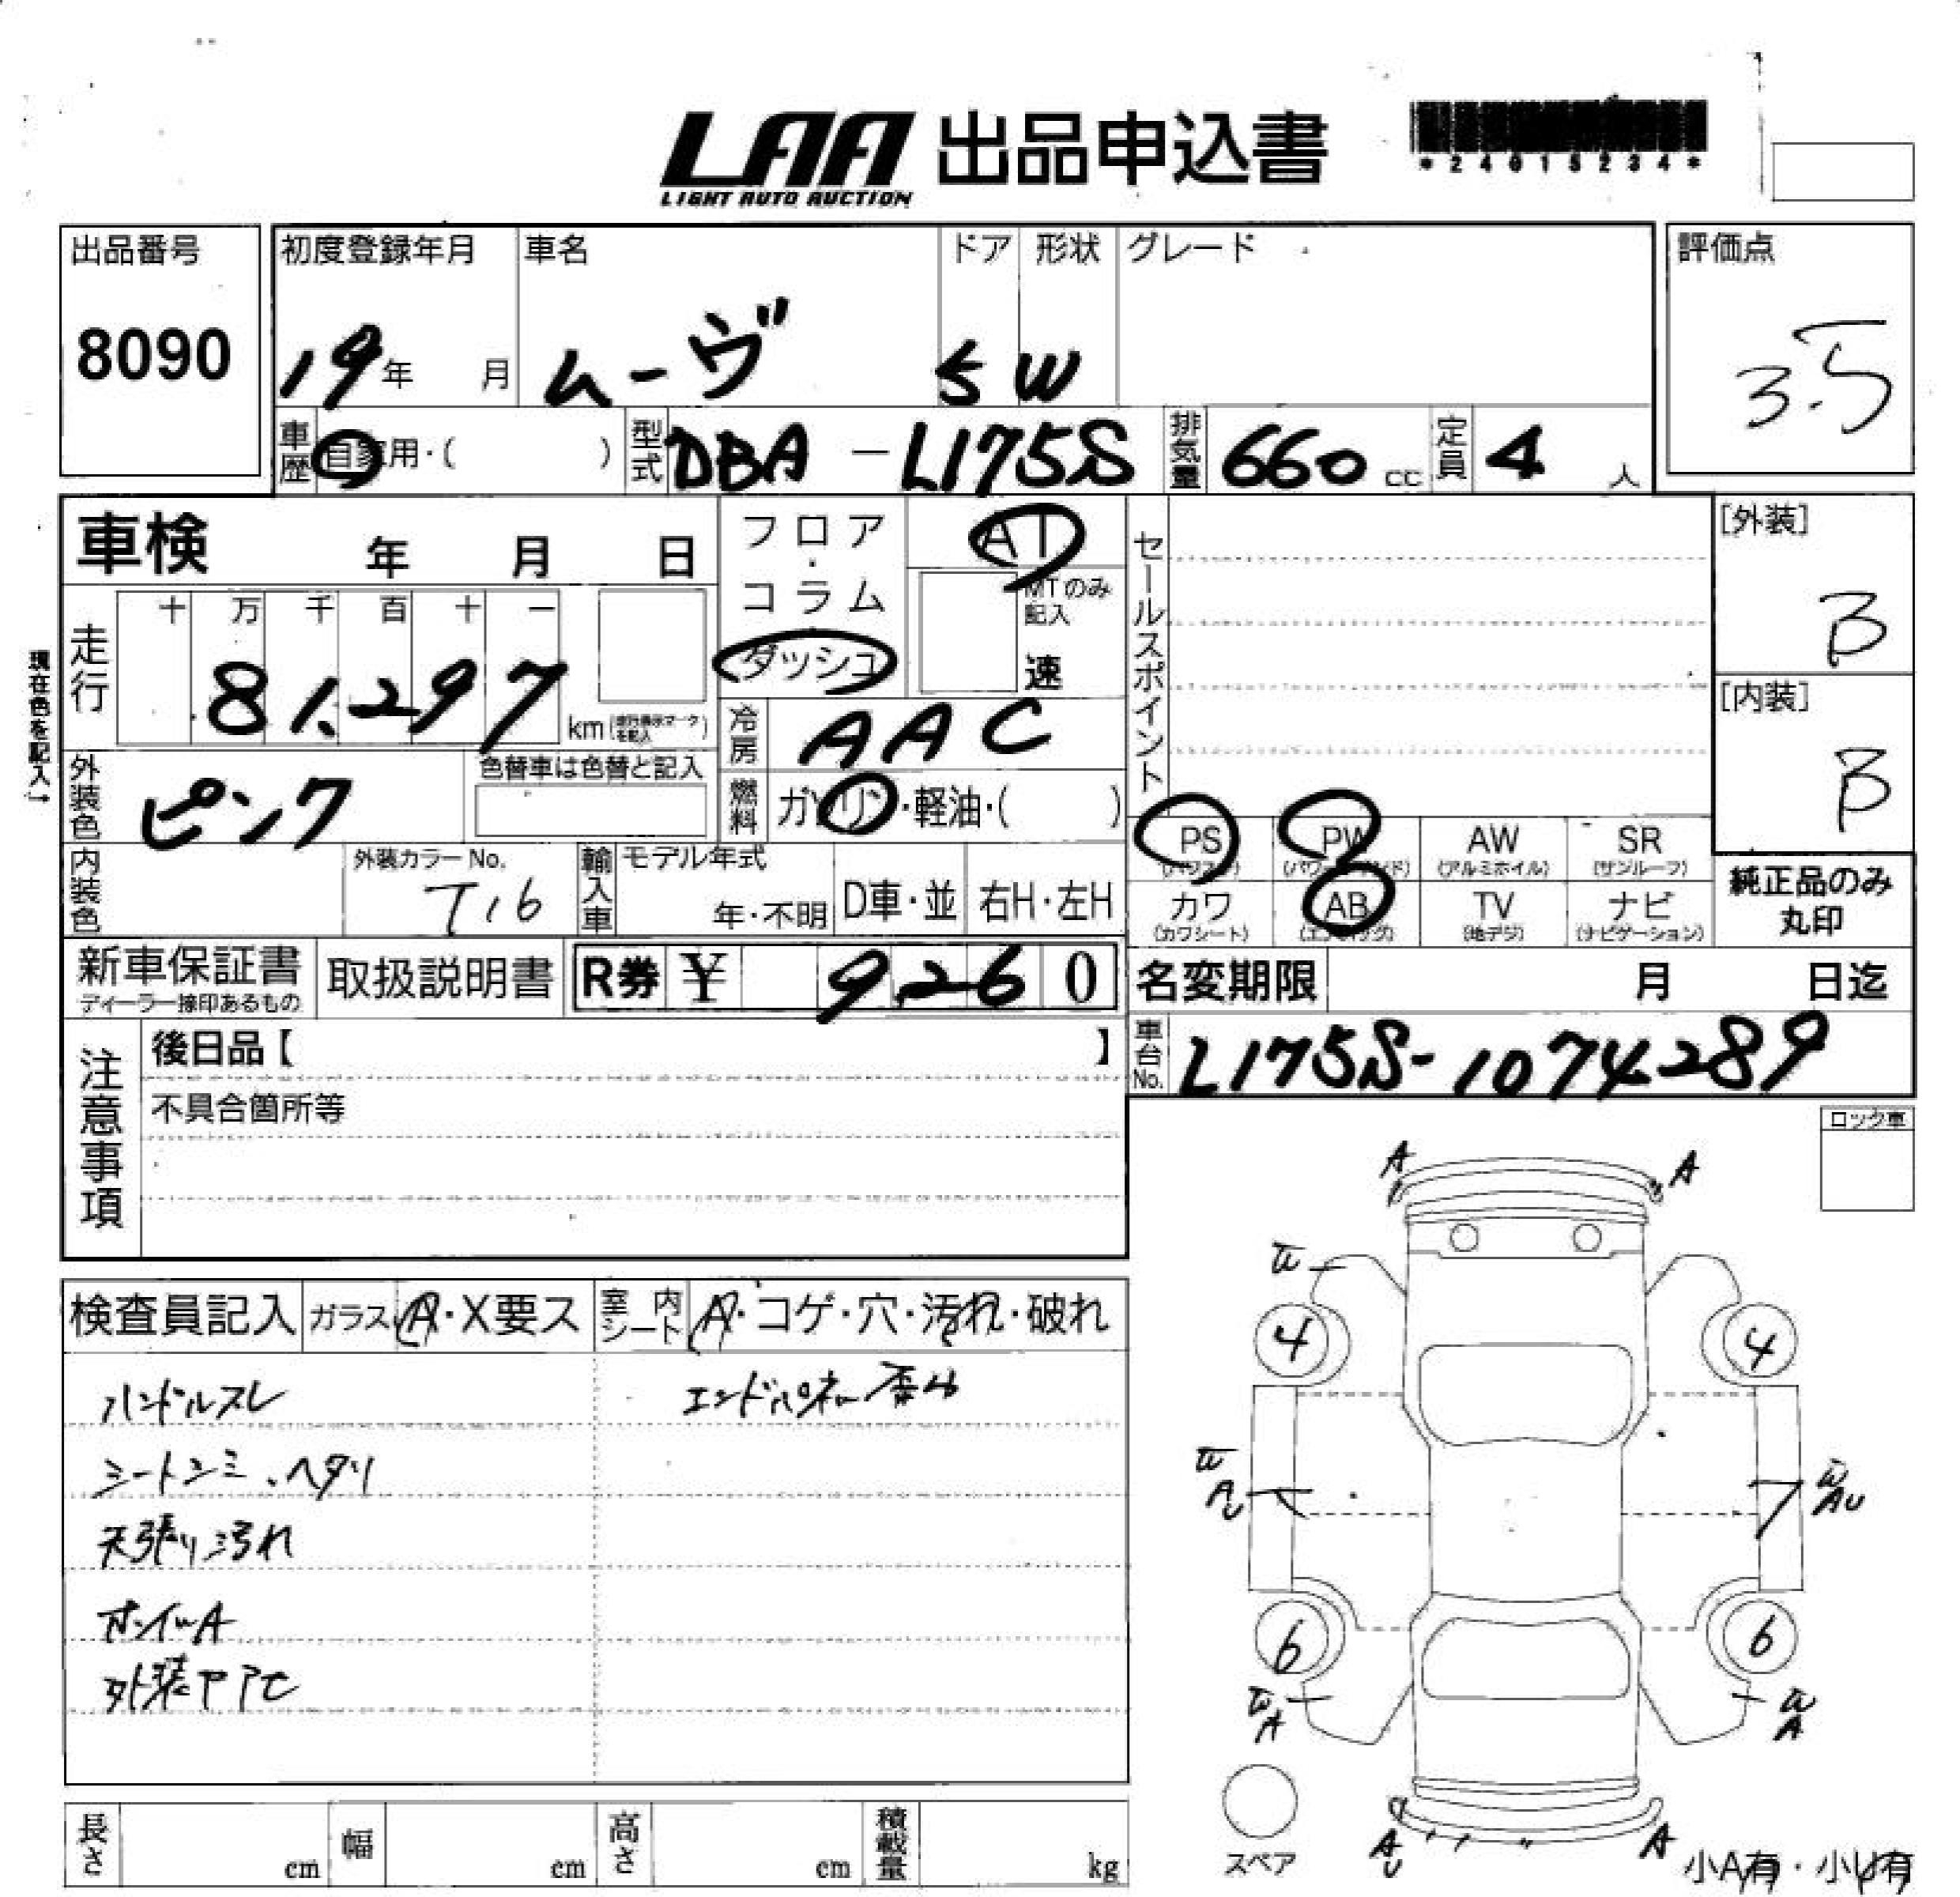 LAA 出品申込書
LIGHT AUTO AUCTION
*24015234*
出品番号
8090
初度登録年月
19年 月
車名
ムーヴ
ドア
5
形状
W
グレード
評価点
3.5
車歴
自家用・( )
型式
DBA-L175S
排気量
660 cc
定員
4 人
車検 年 月 日
フロア・コラム
ダッシュ
AT
MTのみ記入
速
現在色を記入→
走行
十 万 千 百 十 一
81.297
km
冷房
AAC
外装色
ピンク
色替車は色替と記入
燃料
ガソリン・軽油・( )
内装色
外装カラーNo.
T16
輸入車
モデル年式
年・不明
D車・並
右H・左H
新車保証書
ディーラー捺印あるもの
取扱説明書
R券 ¥ 9.260
セールスポイント
[外装]
B
[内装]
B
PS
PW
AW
(アルミホイル)
SR
(サンルーフ)
カワ
(カワシート)
AB
TV
(地デジ)
ナビ
(ナビゲーション)
純正品のみ
丸印
名変期限 月 日迄
車台No.
L175S-1074289
注意事項
後日品【 】
不具合箇所等
ロック車
検査員記入
ガラス A・X要ス
室内シート A・コゲ・穴・汚れ・破れ
ハンドルスレ
シートシミ、ヘタリ
天張り汚れ
ホイルA
A
A
W
4
4
W
A
U
W
AU
6
6
W
A
W
A
A
U
A
スペア
小A有・小U有
長さ cm
幅 cm
高さ cm
積載量 kg